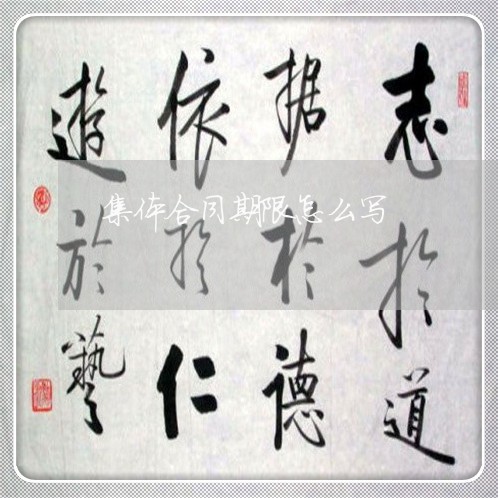 志於道
据於德
依於仁
遊於藝
集体合同期限怎么写